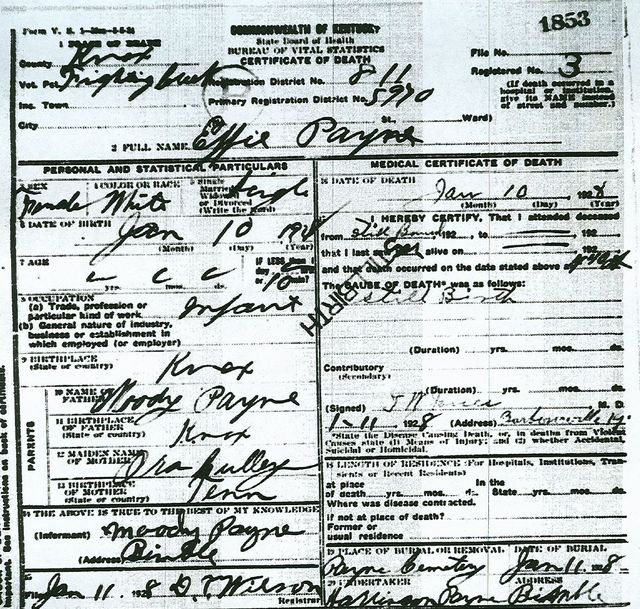 Form V. S. 1
COMMONWEALTH OF KENTUCKY
1853
State Board of Health
BUREAU OF VITAL STATISTICS
CERTIFICATE OF DEATH
1 PLACE OF DEATH
County Knox
File No.
Vot. Pct. Registration District No. 811
Registered No. 3
Inc. Town Primary Registration District No. 5970
(If death occurred in a
hospital or institution,
give its NAME instead
of street and number.)
City St. Ward)
2 FULL NAME Effie Payne
PERSONAL AND STATISTICAL PARTICULARS
3 SEX Female
4 COLOR OR RACE White
5 Single
Married
Widowed
or Divorced
(Write the word) Single
6 DATE OF BIRTH Jan 10 192
(Month) (Day) (Year)
7 AGE
yrs. mos. ds.
IF LESS than 1
8 OCCUPATION
(a) Trade, profession or
particular kind of work Infant
(b) General nature of industry,
business or establishment in
which employed (or employer)
9 BIRTHPLACE
(State or country) Knox
PARENTS
10 NAME OF
FATHER Moody Payne
11 BIRTHPLACE
OF FATHER
(State or country) Knox
12 MAIDEN NAME
OF MOTHER Ora
13 BIRTHPLACE
OF MOTHER
(State or country) Tenn
14 THE ABOVE IS TRUE TO THE BEST OF MY KNOWLEDGE
(Informant) Moody Payne
(Address) Bimble
15
Jan 11 1928 D. T. Wilson
Registrar
MEDICAL CERTIFICATE OF DEATH
16 DATE OF DEATH
Jan 10 1928
(Month) (Day) (Year)
I HEREBY CERTIFY, That I attended deceased
from Still Born 192 , to 192
that I last saw alive on 192
and that death occurred on the date stated above at
The CAUSE OF DEATH* was as follows:
Still Birth
STILL BIRTH
(Duration) yrs. mos. ds.
Contributory
(Secondary)
(Duration) yrs. mos. ds.
(Signed) M. D.
1-11 1928 (Address) Barbourville, Ky.
*State the Disease Causing Death, or, in deaths from Violent
Causes state (1) Means of Injury; and (2) whether Accidental,
Suicidal or Homicidal.
18 LENGTH OF RESIDENCE (For Hospitals, Institutions, Transients or Recent Residents)
at place In the
of death yrs. mos. ds. State yrs. mos. ds.
Where was disease contracted,
if not at place of death?
Former or
usual residence
19 PLACE OF BURIAL OR REMOVAL DATE OF BURIAL
Payne Cemetery Jan 11 1928
20 UNDERTAKER ADDRESS
Harrison Payne Bimble